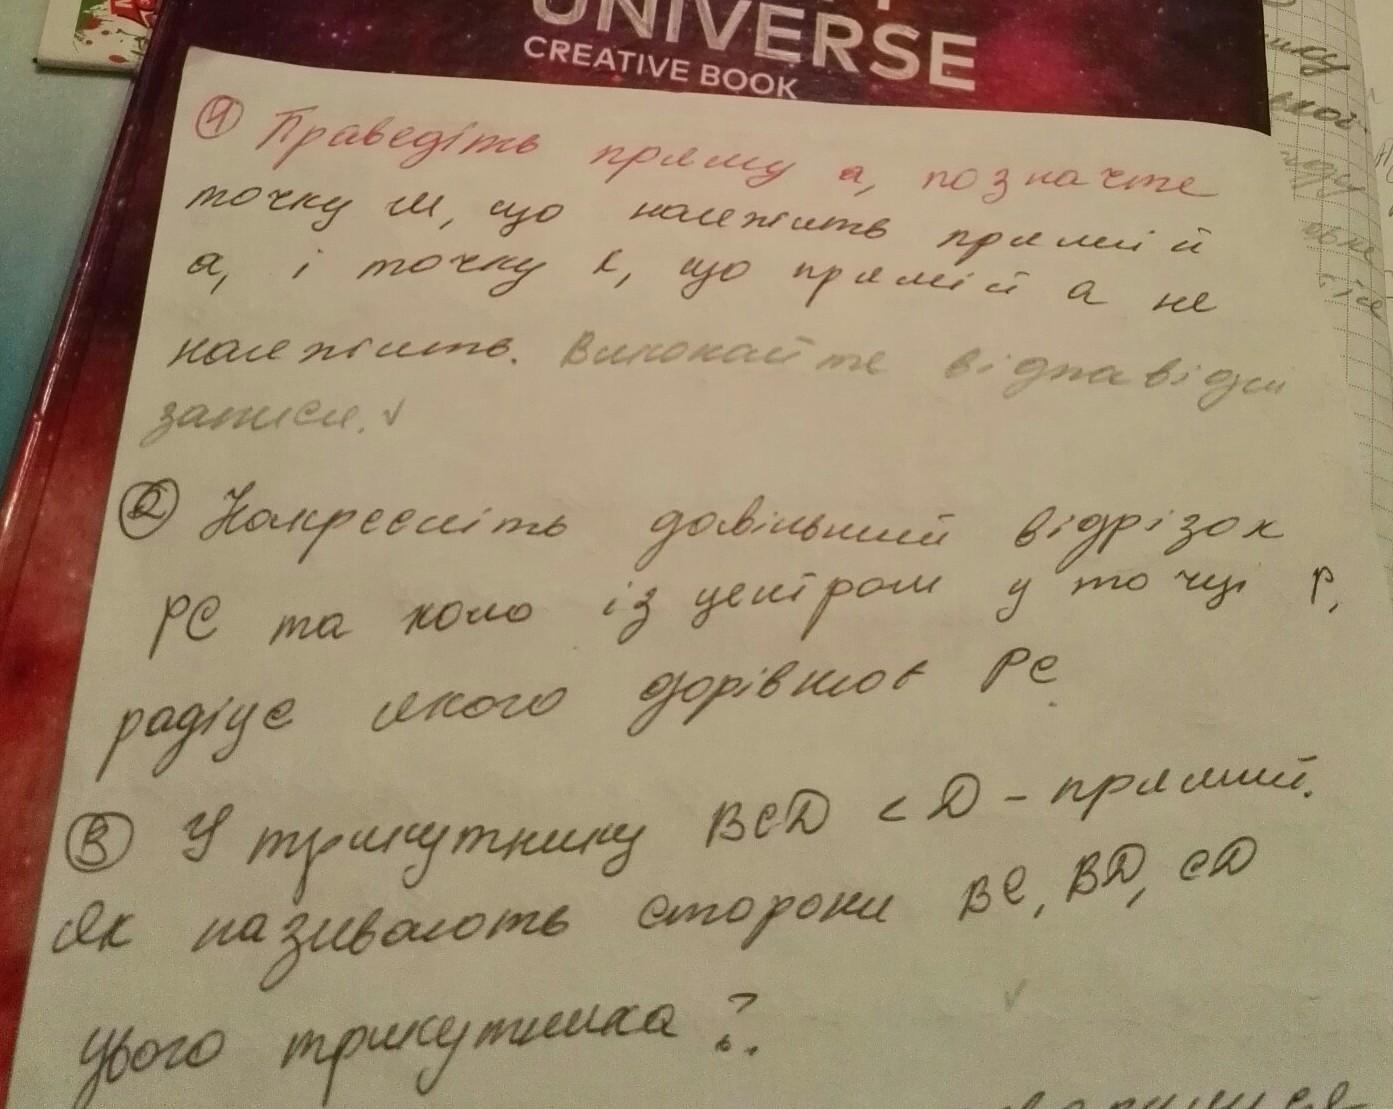 UNIVERSE
CREATIVE BOOK
① Праведіть пряму а, позначте
точку М, що належить прямій
а, і точку К, що прямій а не
належить. Виконайте відпавідні
записи. ✓
② Накресліть довільний відрізок
РС та коло із центром у точці Р,
радіус якого дорівнює РС.
③ У трикутнику ВСD < D - прямий.
Як називають сторони ВС, ВD, СD
цього трикутника?